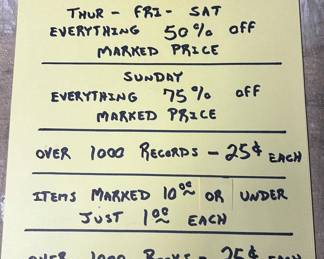 THUR - FRI - SAT
EVERYTHING 50% OFF
MARKED PRICE
SUNDAY
EVERYTHING 75% OFF
MARKED PRICE
OVER 1000 RECORDS - 25¢ EACH
ITEMS MARKED 10⁰⁰ OR UNDER
JUST 1⁰⁰ EACH
OVER 1000 BOOKS - 25¢ EACH